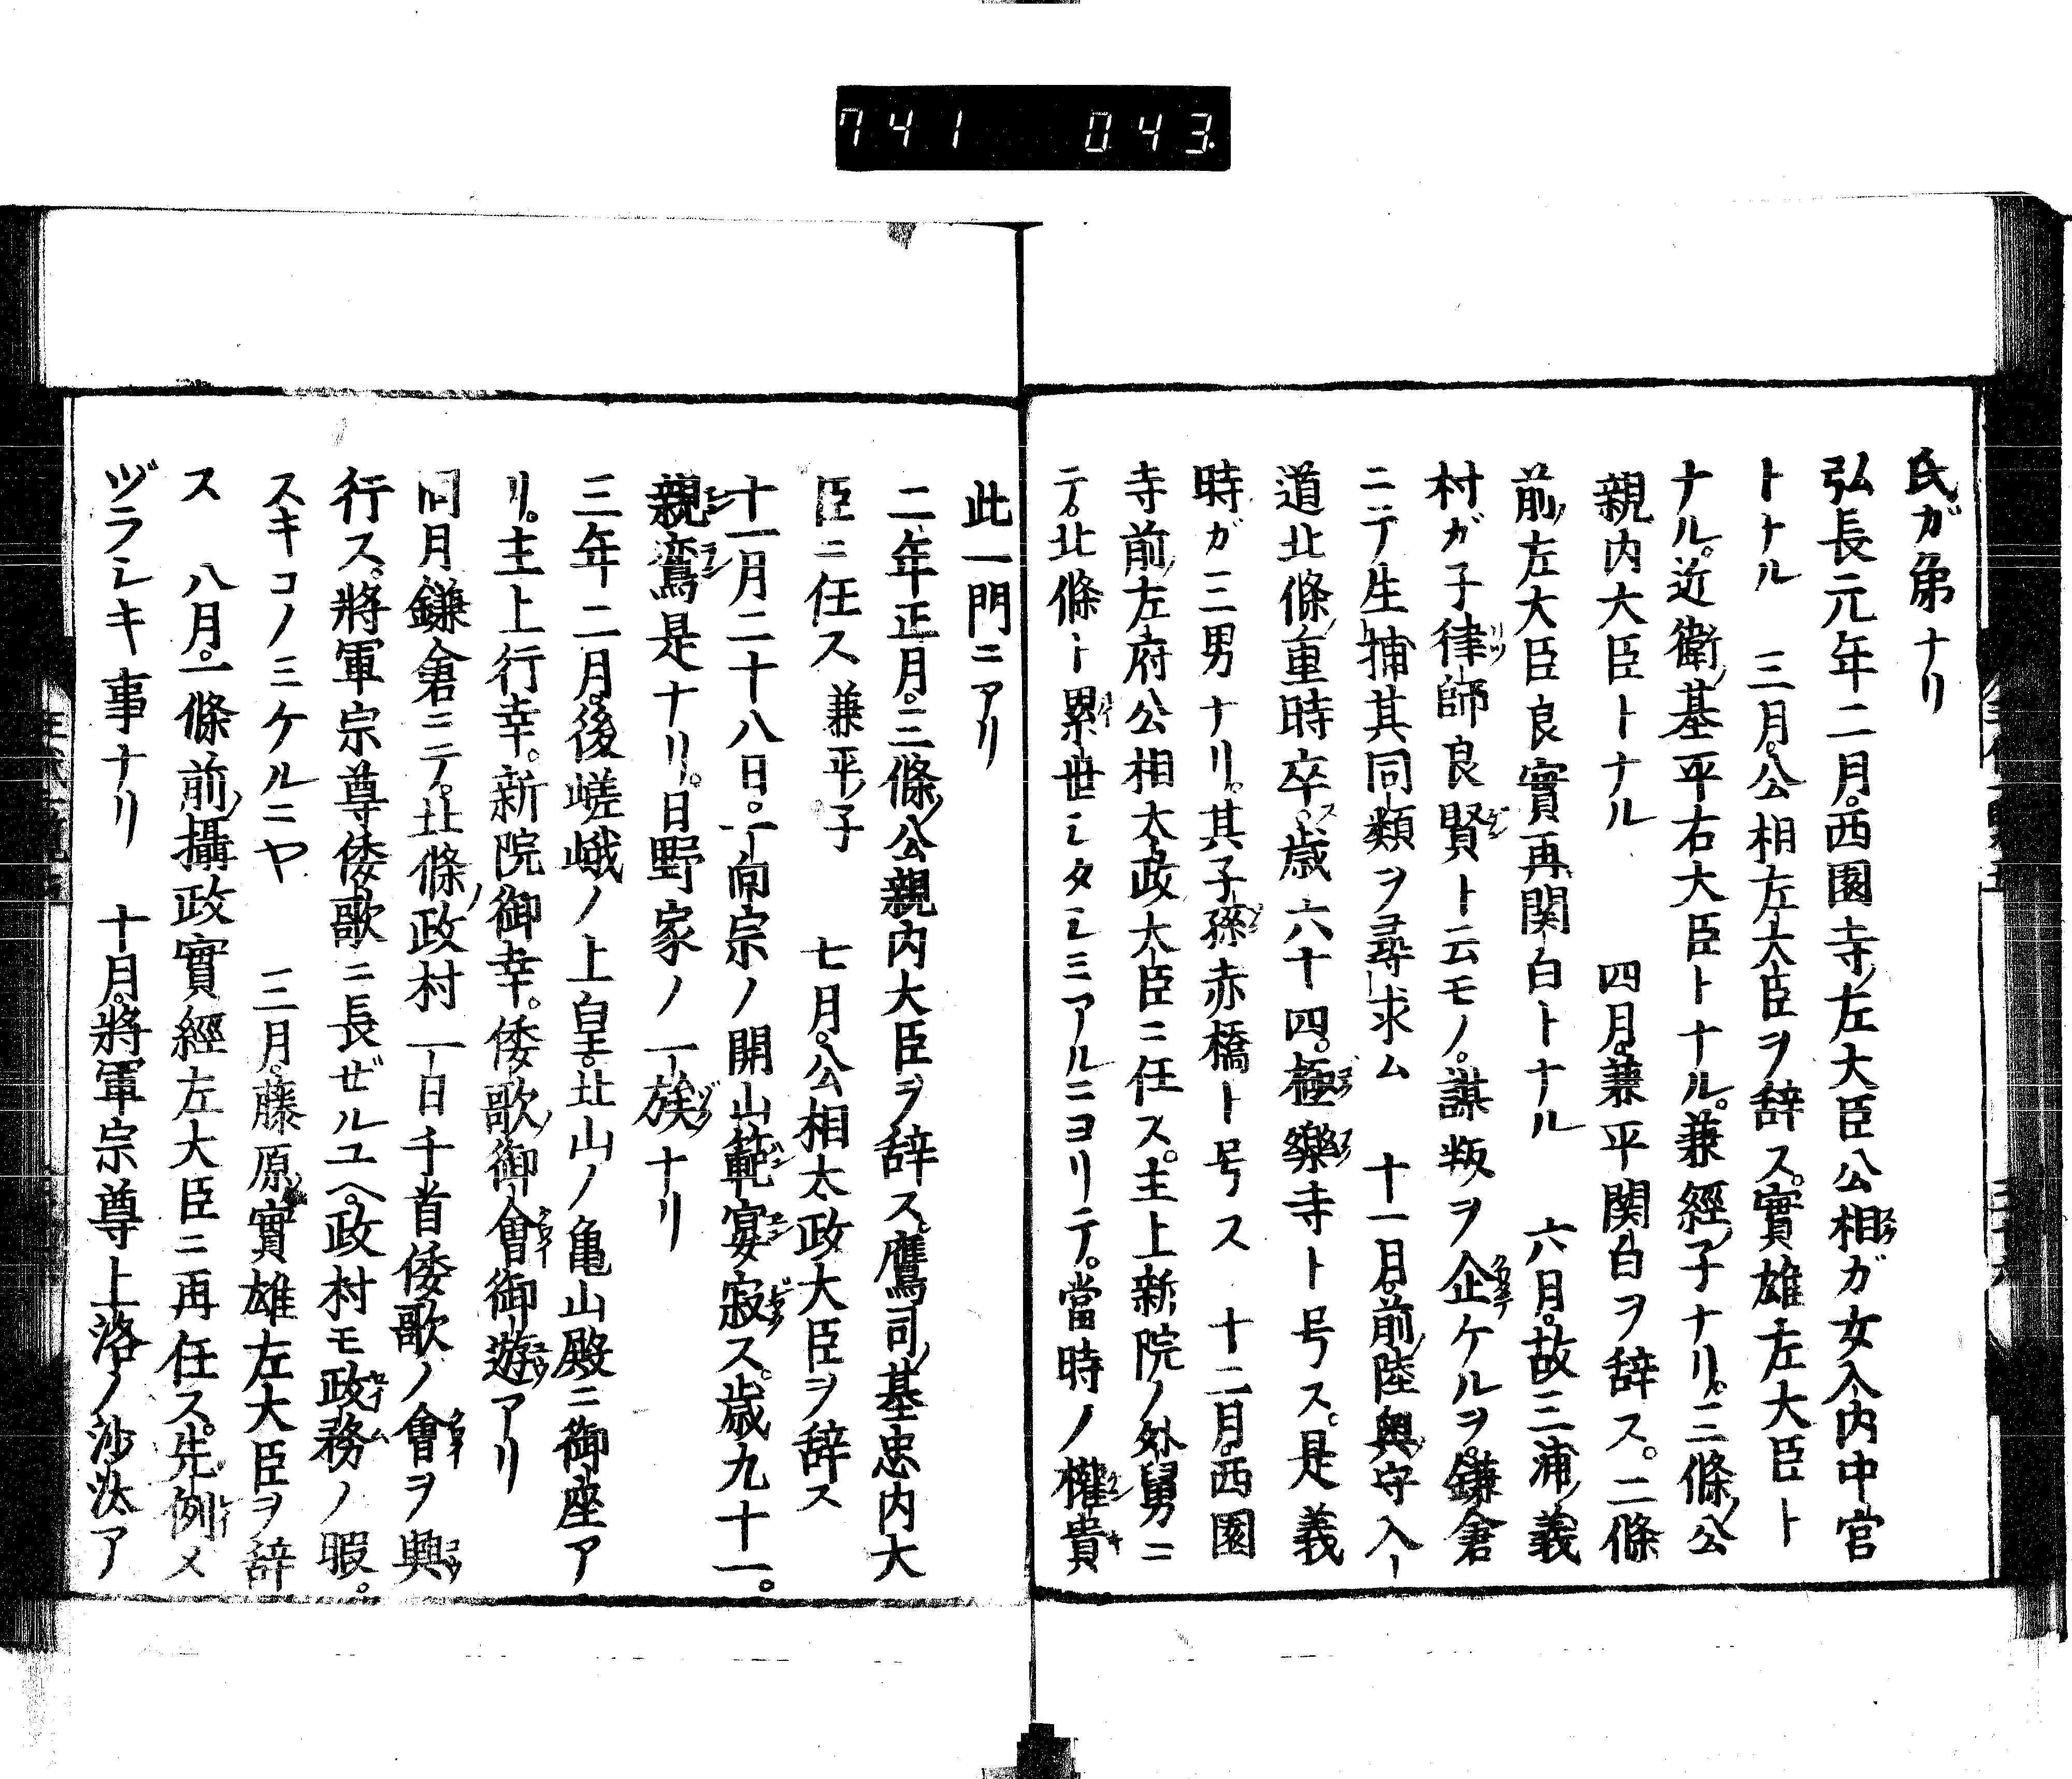 741 043
氏ガ弟ナリ
弘長元年二月。西園寺ノ左大臣公相ガ女入内中宮
トナル　三月。公相左大臣ヲ辞ス。實雄左大臣ト
ナル。近衛ノ基平右大臣トナル。兼經ノ子ナリ。三條ノ公
親内大臣トナル　四月。兼平関白ヲ辞ス。二條
前ノ左大臣良實再関白トナル　六月。故三浦ノ義
村ガ子律師良賢ト云モノ。謀叛ヲ企ケルヲ。鎌倉
ニテ生捕其同類ヲ尋求ム　十一月。前ノ陸奥ノ守入
道北條ノ重時卒ス。歳六十四。極樂寺ト号ス。是義
時ガ三男ナリ。其子孫赤橋ト号ス　十二月。西園
寺前ノ左府公相太政大臣ニ任ス。主上新院ノ外舅ニ
テ。北條ト累世シタシミアルニヨリテ。當時ノ權貴
此一門ニアリ
二年正月。三條ノ公親内大臣ヲ辞ス。鷹司ノ基忠内大
臣ニ任ス兼平ノ子　七月。公相太政大臣ヲ辞ス
十一月二十八日。一向宗ノ開山範宴寂ス。歳九十一。
親鸞是ナリ。日野家ノ一族ナリ
三年二月。後嵯峨ノ上皇。北山ノ亀山殿ニ御座ア
リ。主上行幸。新院御幸。倭歌ノ御會御遊アリ
同月鎌倉ニテ。北條ノ政村一日千首倭歌ノ會ヲ興
行ス。將軍宗尊倭歌ニ長ゼルユヘ。政村モ政務ノ暇。
スキコノミケルニヤ　三月。藤原ノ實雄左大臣ヲ辞
ス　八月。一條前ノ攝政實經左大臣ニ再任ス。先例メ
ヅラシキ事ナリ　十月。將軍宗尊上洛ノ沙汰ア